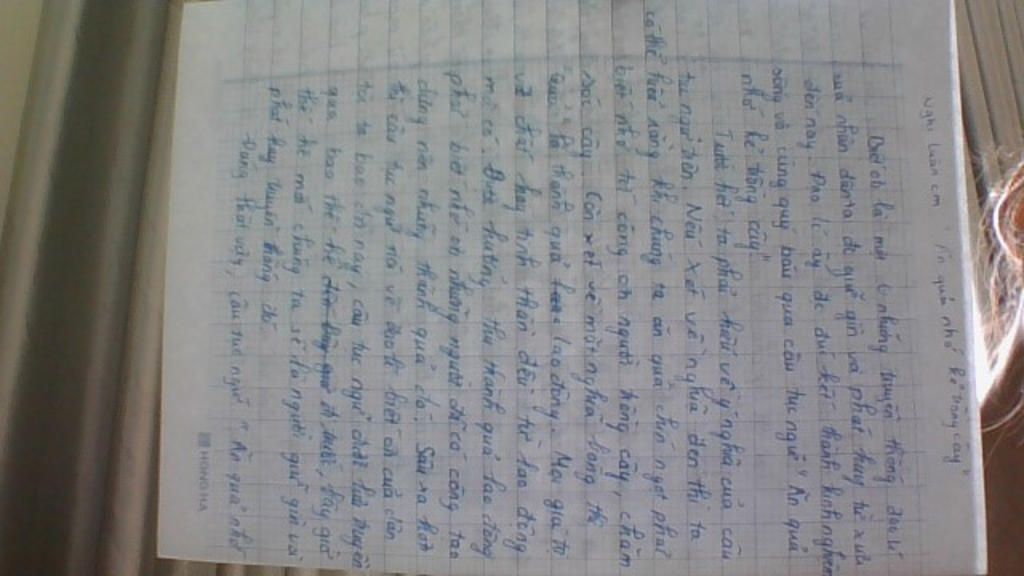 Nghị luận cm " Ăn quả nhớ kẻ trồng cây"
Biết ơn là một trong những truyền thống đạo lí
mà nhân dân ta đã giữ gìn và phát huy từ xưa
đến nay. Đạo lí ấy đc đúc kết thành kinh nghiệm
sống vô cùng quý báu qua câu tục ngữ " Ăn quả
nhớ kẻ trồng cây"
Trước hết, ta phải hiểu về ý nghĩa của câu
tục ngữ trên. Nếu xét về nghĩa đen thì ta
có thể hiểu rằng khi chúng ta ăn quả chín ngọt phải
biết nhớ tới công ơn người trồng cây, chăm
sóc cây. Còn xét về mặt nghĩa bóng thì
quả là thành quả lao động. Mọi giá trị
vật chất hay tinh thần đều từ lao động
mà có. thưởng thụ thành quả lao động
phải biết nhớ ơn những người đã có công tạo
dựng nên những thành quả đó.
thì câu tục ngữ nói về biết ơn của dân
tộc ta bao đời nay, câu tục ngữ đc lưu truyền
qua bao thế hệ bây giờ
thế hệ mới chúng ta sẽ là người giữ gìn và
phát huy truyền thống đó.
Đúng thật vậy, câu tục ngữ " Ăn quả nhớ
HONG HA